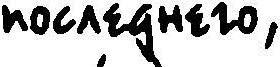 последнего,